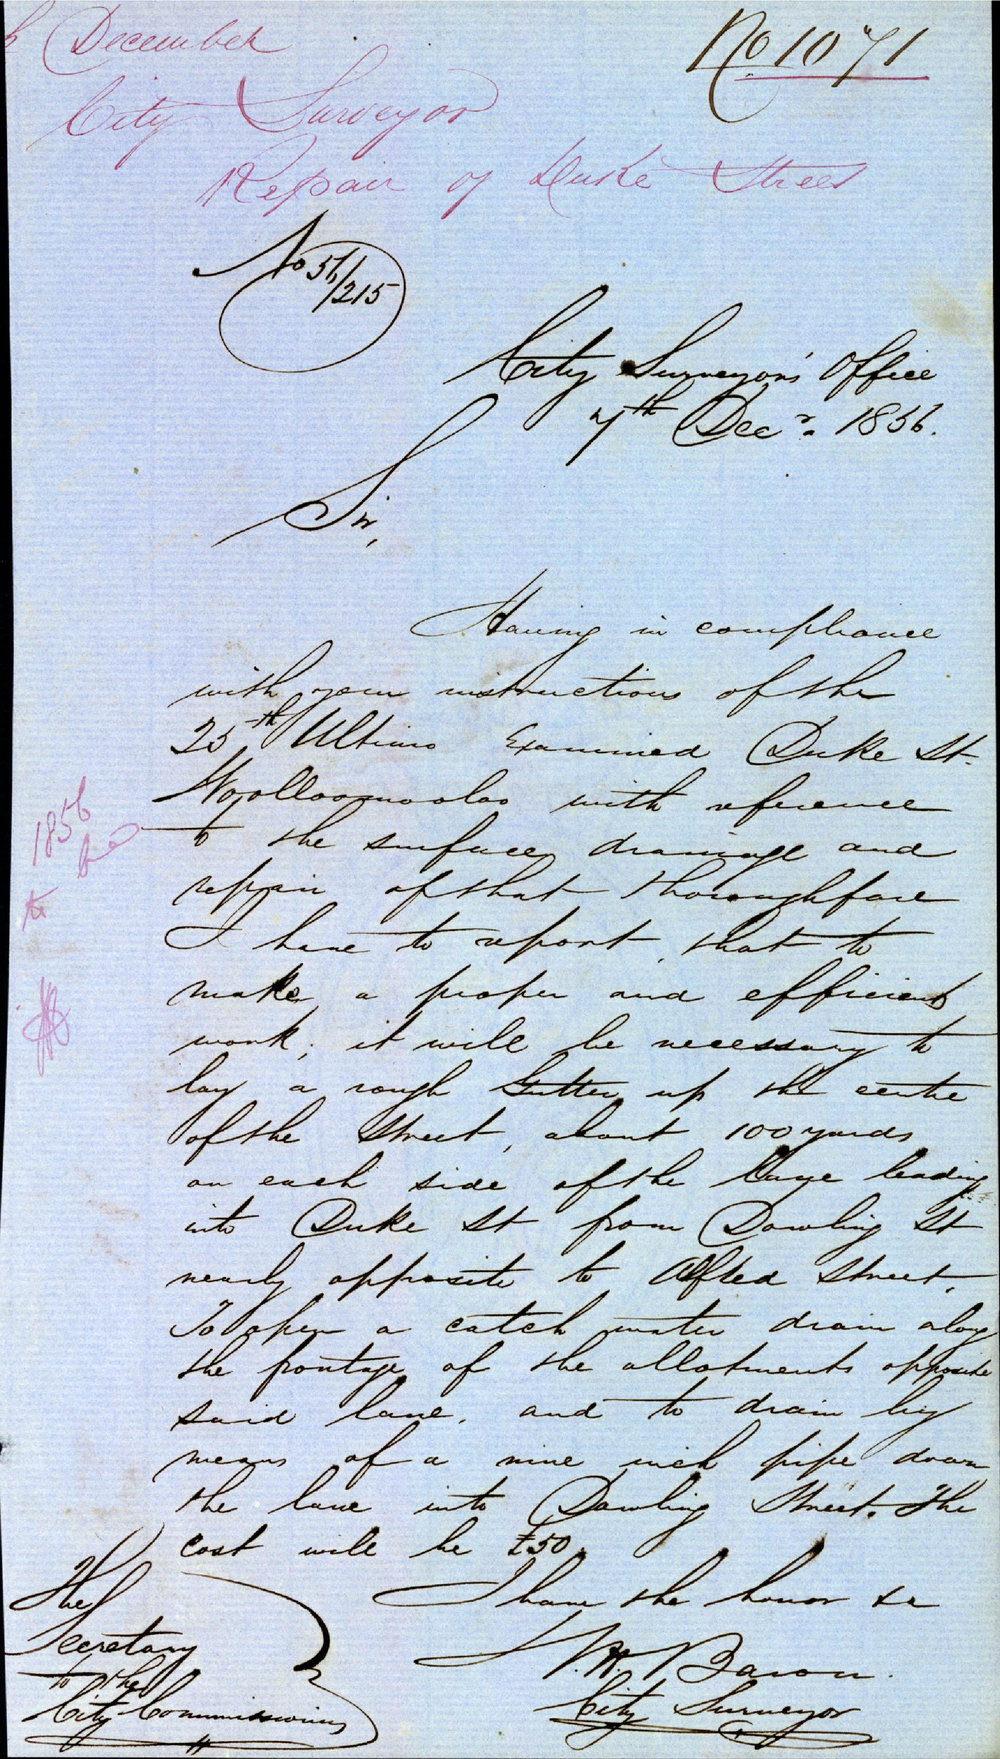 December
No 1071
City Surveyor
Repair of Duke Street
No 56/215
City Surveyor's Office
7th Decr. 1856.
Sir,
Having in compliance
with your instructions of the
25th Ultimo Examined Duke St.
Woolloomooloo with reference
to the surface drainage and
repair of that thoroughfare
I have to report, that to
make a proper and efficient
work, it will be necessary to
lay a rough Gutter up the centre
of the Street, about 100 yards
on each side of the lane leading
into Duke St from Dowling St
nearly opposite to Alfred Street.
To open a catch water drain along
the frontage of the allotments opposite
said lane, and to drain by
means of a nine inch pipe down
the lane into Dowling Street. The
cost will be £50.
I have the honor &c
W. H. Baron
City Surveyor
The
Secretary
to the
City Commissioners
1856